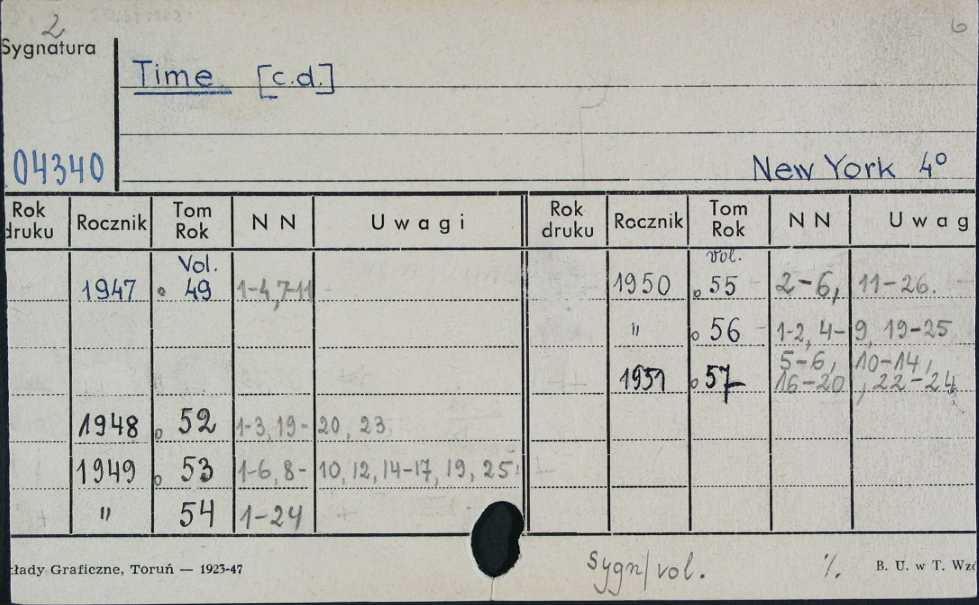 2
6
Sygnatura
Time [c.d.]
04340
New York 4°
Rok druku Rocznik Tom Rok N N Uwagi
1947 Vol. 49 1-4, 7-11
1948 52 1-3, 19-20, 23
1949 53 1-6, 8-10, 12, 14-17, 19, 25
" 54 1-24
Rok druku Rocznik Tom Rok N N Uwag
1950 vol. 55 2-6, 11-26.
" 56 1-2, 4-9, 19-25
1951 57 5-6, 10-14, 16-20, 22-24
Graficzne, Toruń — 1923-47
Sygn/vol.
B. U. w T.